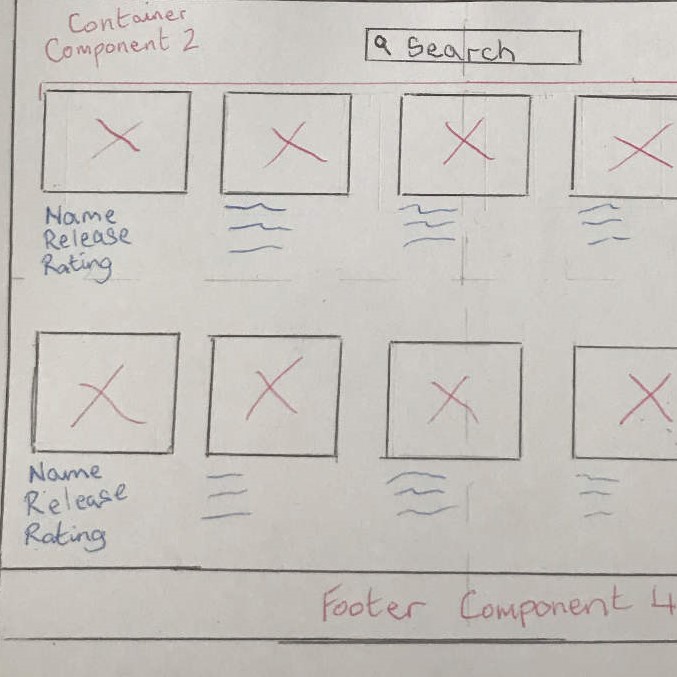 Container
Component 2
Search
Name
Release
Rating
Name
Release
Rating
Footer Component 4